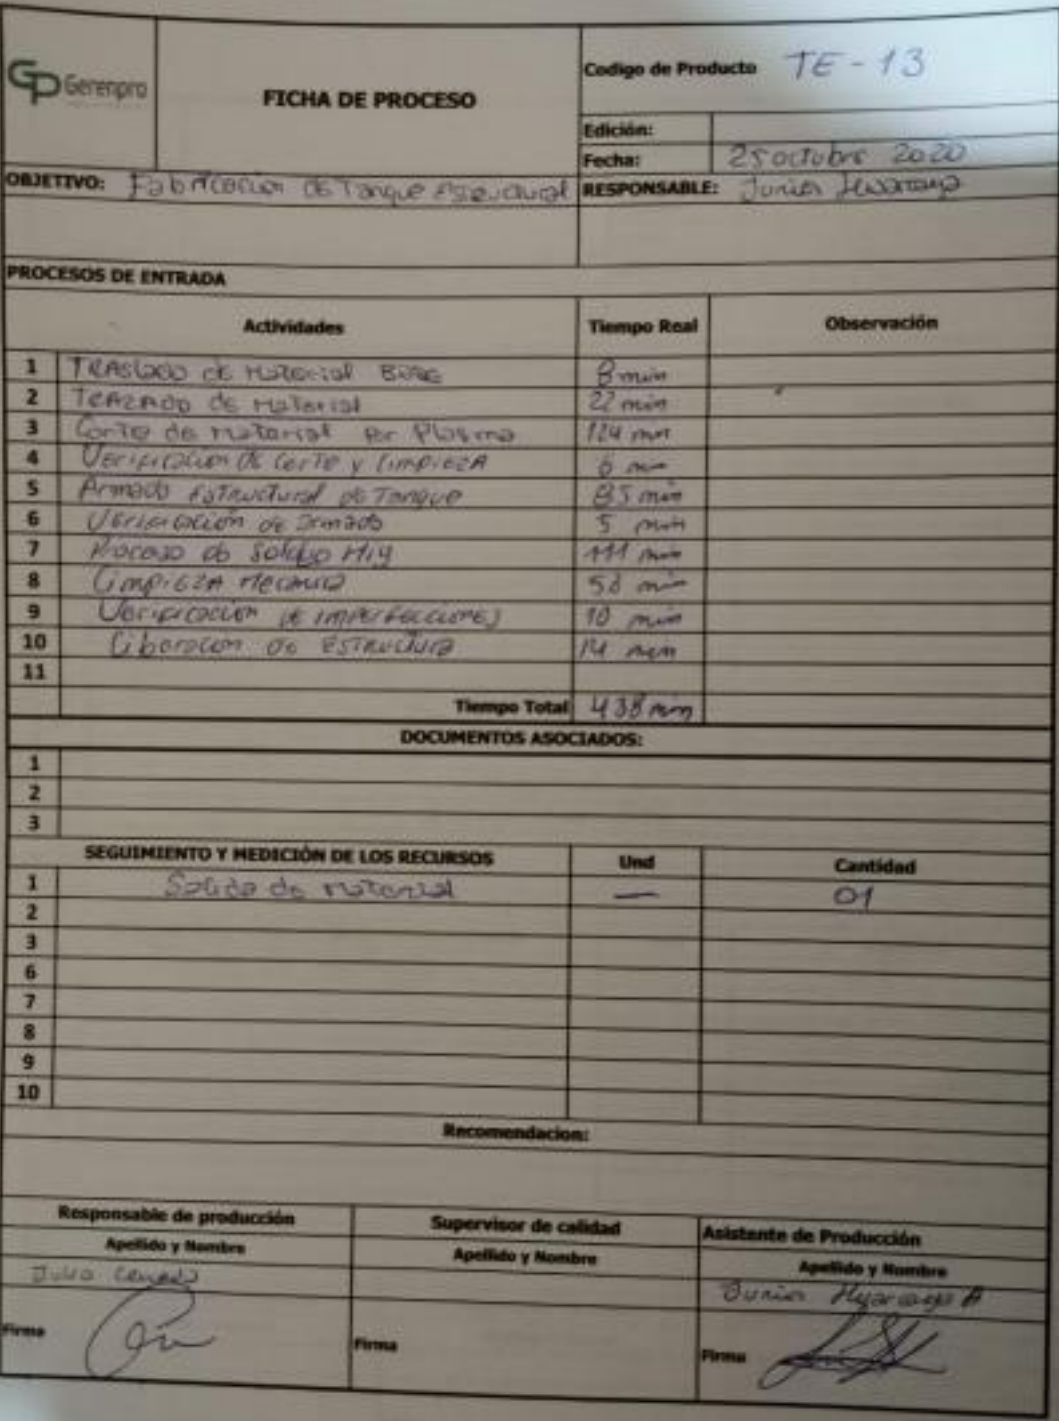 GP Gerenpro
FICHA DE PROCESO
Codigo de Producto TE-13
Edición:
Fecha: 25 octubre 2020
OBJETIVO: Fabricación de Tanque Estructural
RESPONSABLE: Junior
PROCESOS DE ENTRADA
Actividades Tiempo Real Observación
1 TRASlado de Material BASE 8 min
2 TRAZADO de Material 22 min
3 Corte de material por Plasma 124 min
4 Verificación de Corte y limpieza 6 min
5 Armado Estructural de Tanque 85 min
6 Verificación de Armado 5 min
7 Proceso de Soldeo Mig 111 min
8 Limpieza Mecanica min
9 Verificación de imperfecciones 10 min
10 Liberación de Estructura 14 min
11
Tiempo Total 438 min
DOCUMENTOS ASOCIADOS:
1
2
3
SEGUIMIENTO Y MEDICIÓN DE LOS RECURSOS Und Cantidad
1 Salida de material — 01
2
3
6
7
8
9
10
Recomendacion:
Responsable de producción Supervisor de calidad Asistente de Producción
Apellido y Nombre Apellido y Nombre Apellido y Nombre
Julio Junior A
Firma Firma Firma